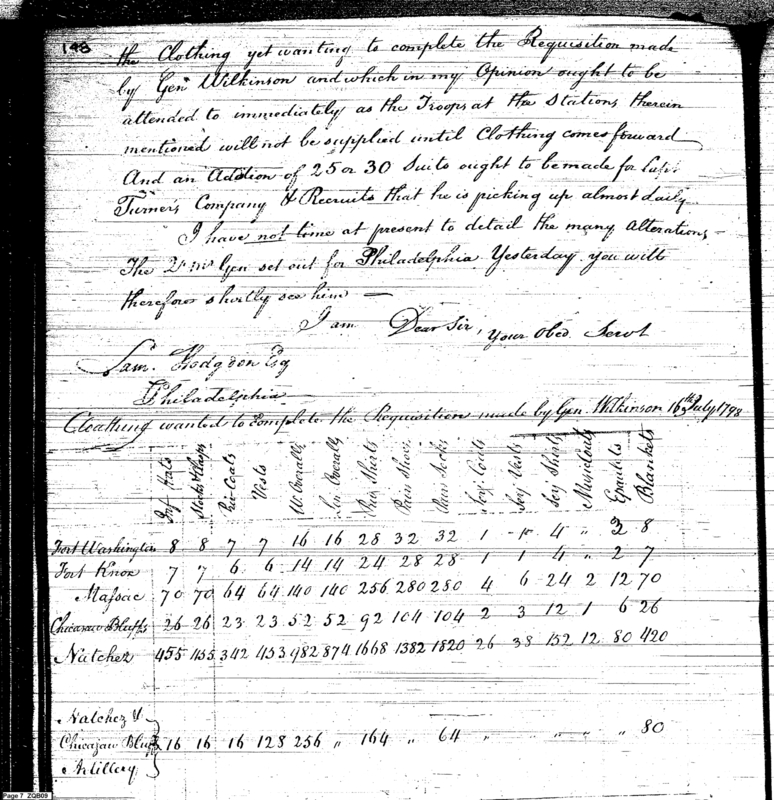 148
the Clothing yet wanting to complete the Requisition made
by Genl Wilkinson and which in my Opinion ought to be
attended to immediately as the Troops at the Stations therein
mentioned will not be supplied until Clothing comes forward
And an Addition of 25 or 30 Suits ought to be made for Capt
Turner's Company & Recruits that he is picking up almost daily
I have not time at present to detail the many alterations
The Qr Mr Gen set out for Philadelphia Yesterday you will
therefore shortly see him
I am Dear Sir, Your Obed Servt
Sam. Hodgdon Esq
Philadelphia
Cloathing wanted to Complete the Requisition made by Gen. Wilkinson 16th July 1798
Inf Hats Stocks & Clasps Priv Coats Vests W Overalls Ln Overalls Priv Shirts Pairs Shoes Pairs Socks Serj Coats Serj Vests Serj Shirts Music Coats Epaulets Blankets
Fort Washington 8 8 7 7 16 16 28 32 32 1 1 4 " 2 8
Fort Knox 7 7 6 6 14 14 24 28 28 1 1 4 " 2 7
Massac 70 70 64 64 140 140 256 280 280 4 6 24 2 12 70
Chicasaw Bluffs 26 26 23 23 52 52 92 104 104 2 3 12 1 6 26
Natchez 455 455 342 453 982 874 1668 1382 1820 26 38 152 12 80 420
Natchez &
Chicasaw Bluffs 16 16 16 128 256 " 164 " 64 " " " " " 80
Artillery
Page 7 ZQB09